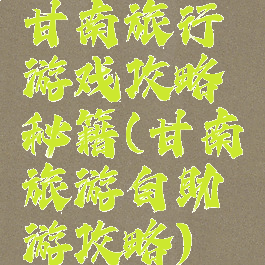 甘南旅行
游戏攻略
秘籍(甘南
旅游自助
游攻略)